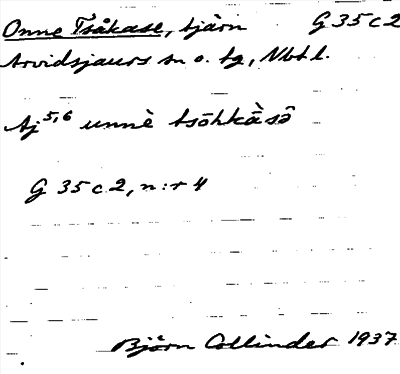 Onne Tsåkase, tjärn G 35 c 2
Arvidsjaurs sn o. tg, Nbt l.
Aj 5,6 unnè tsōhkằsȇ
G 35 c 2, n:r 4
Björn Collinder 1937